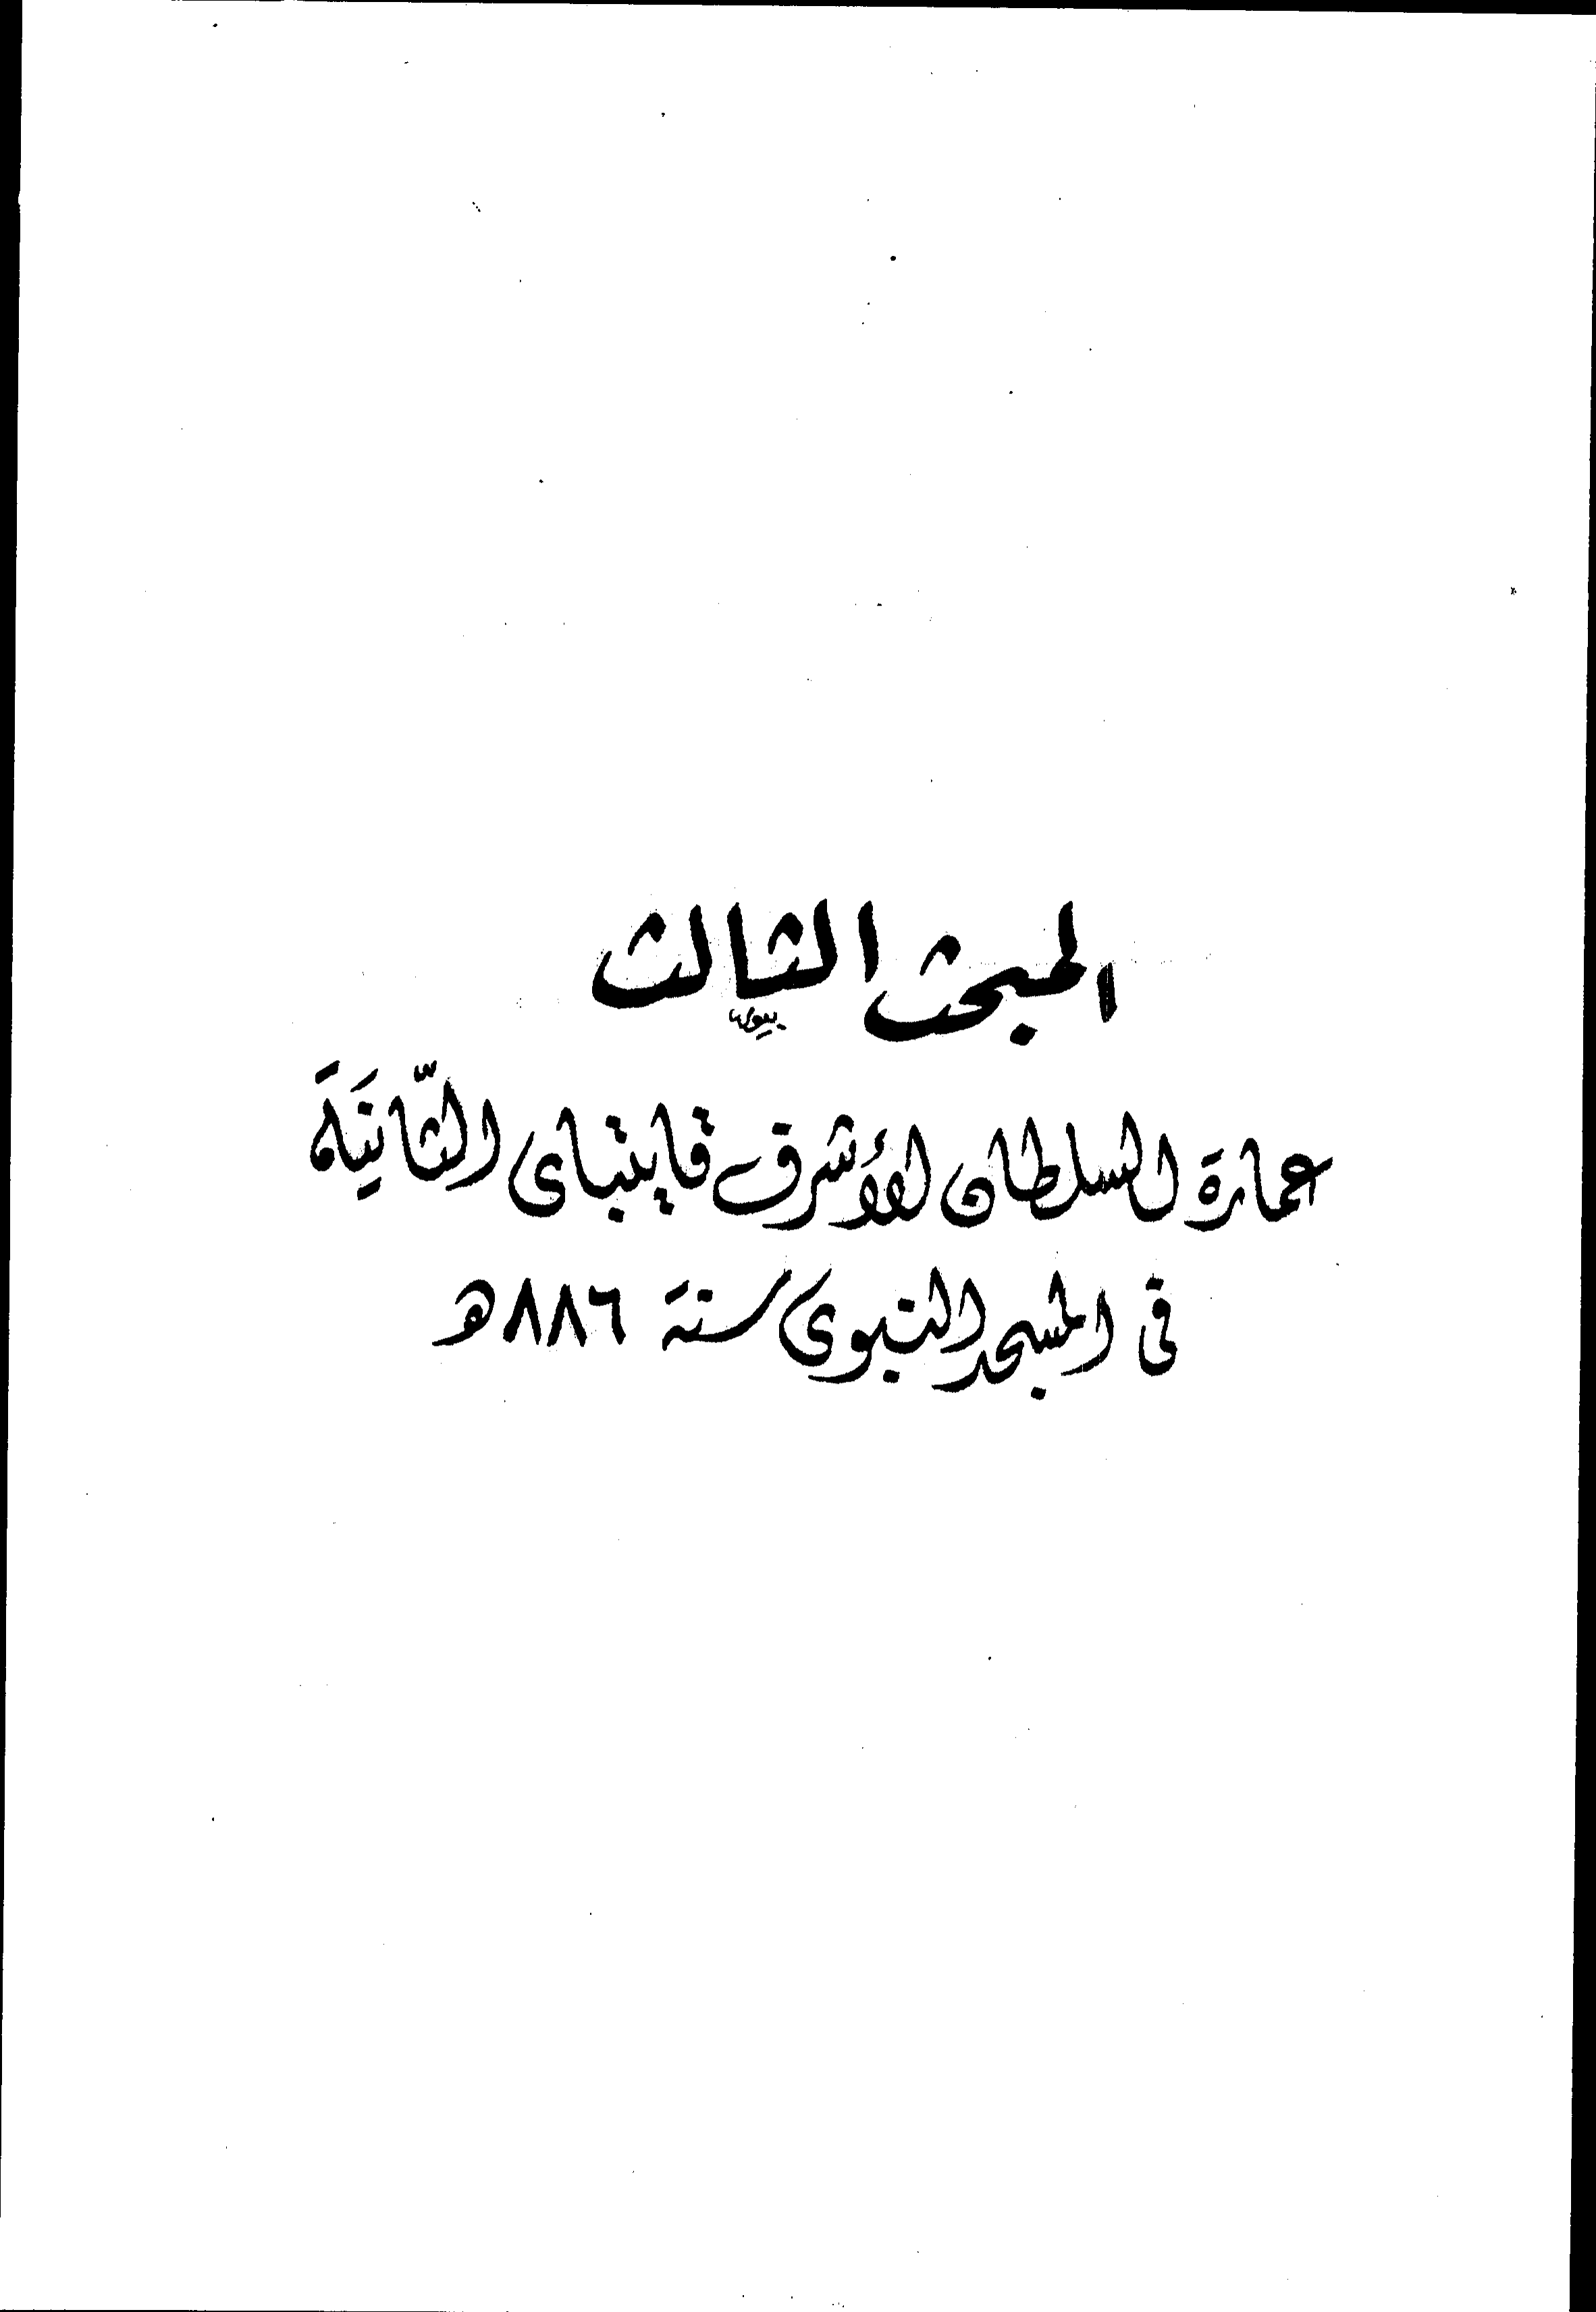 المبحث الثالث
عمارة السلطان الأشرف قايتباى الثّانيَة
فى المسجد النبوى سنة ٨٨٦ هـ